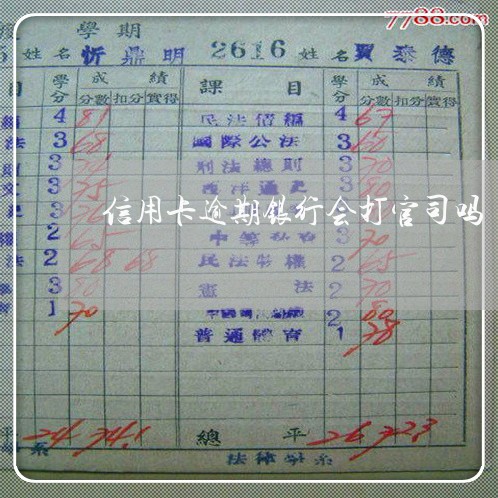 7788.com
學期
姓名 忻鼎明 2616 姓名 賈泰德
目 學分 成績 課目 學分 成績
分數 扣分 實得 分數 扣分 實得
4 81 民法債編 4 67
法 3 68 國際公法 3 60
3 刑法總則 3 70
3 75 西洋通史 3 80
信用卡逾期银行会打官司吗
2 65 3 70
法 2 68 68 民法物權 2 65
3 80 憲法 2 70
1 70 2 80
普通體育 1 78
平 24 74.1 總平 26 72.3
系 法律學系